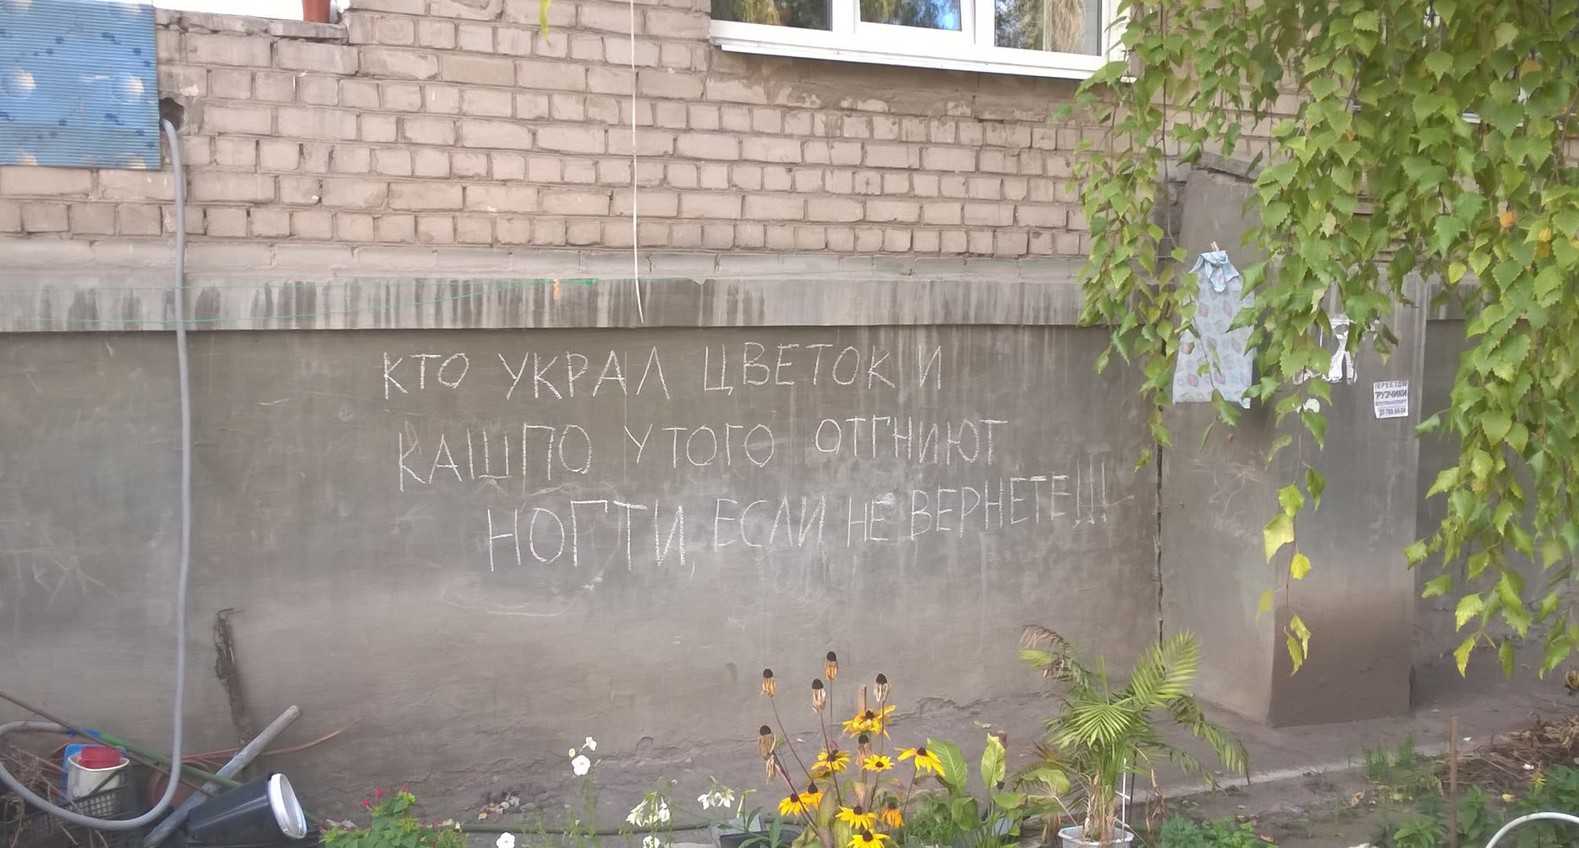 КТО УКРАЛ ЦВЕТОК И
КАШПО У ТОГО ОТГНИЮТ
НОГТИ, ЕСЛИ НЕ ВЕРНЕТЕ!!!
ГРУЗЧИКИ